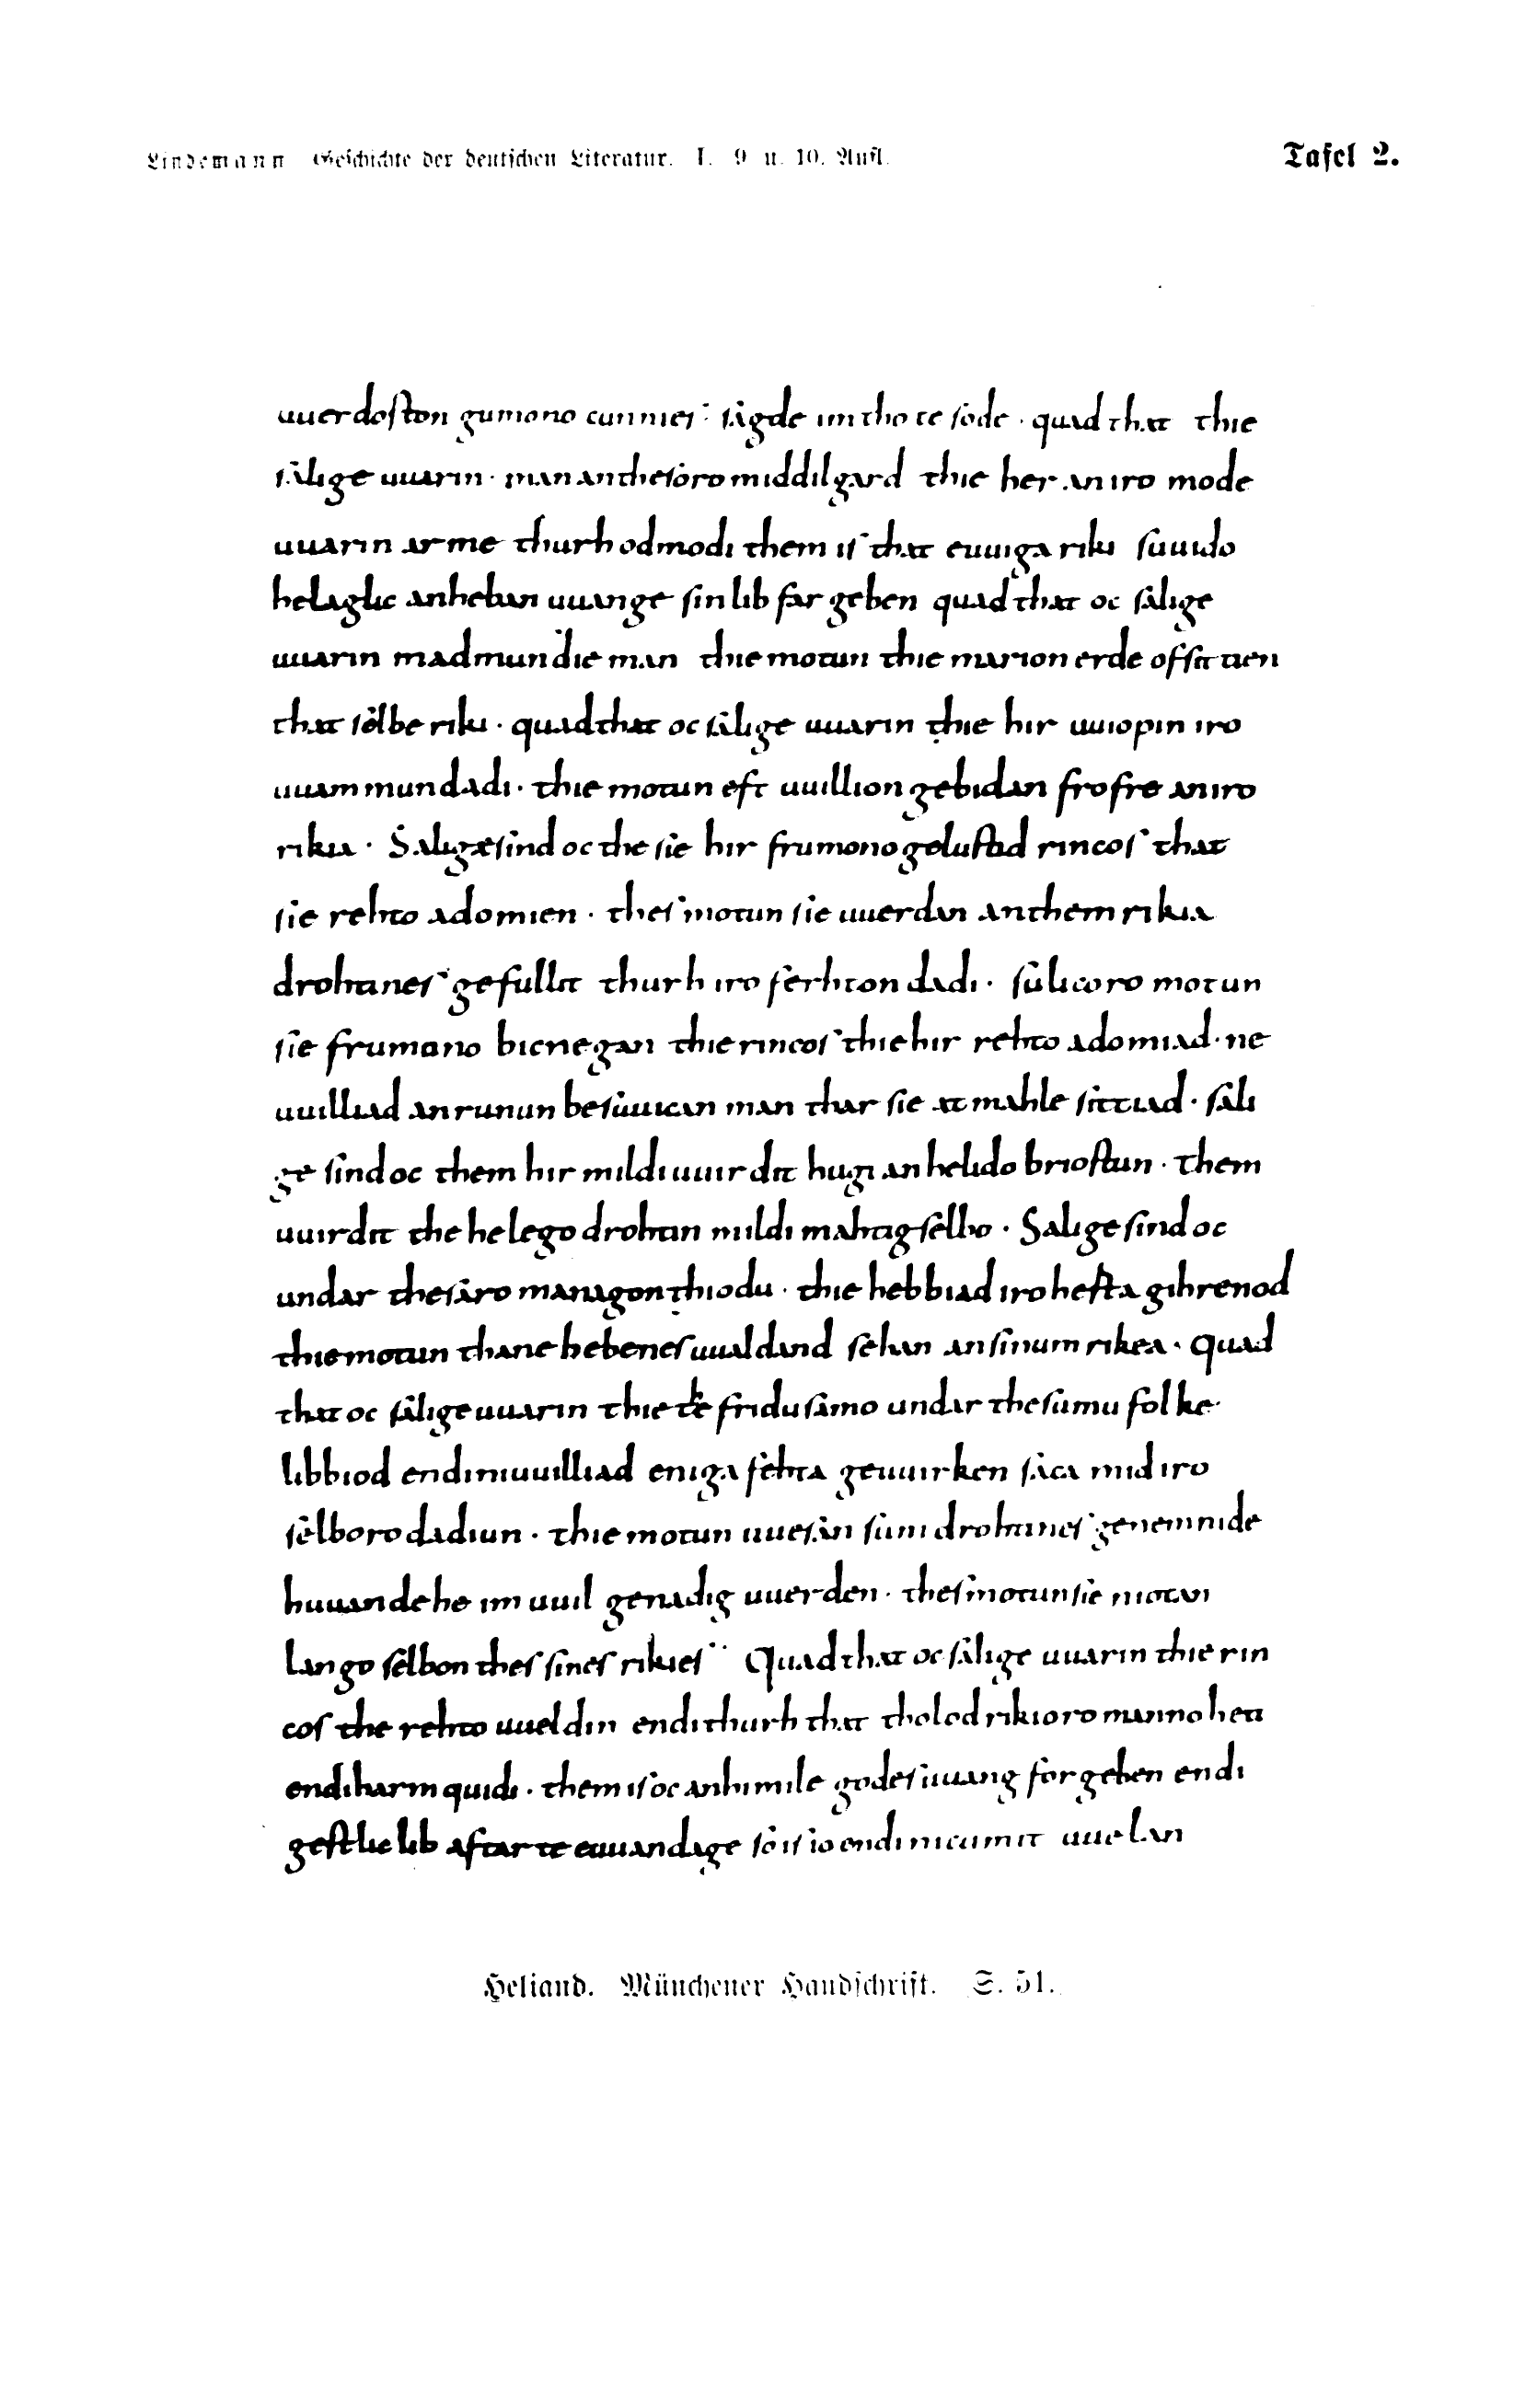 Lindemann Geschichte der deutschen Literatur. I. 9 u. 10. Aufl.
Tafel 2.
uuerdoſton gumono cunnieſ : ſagde im tho te ſode · quad that thie
ſalige uuarin · man an theſoro middilgard thie her an iro mode
uuarin arme thurh odmodi them iſ that euuiga riki ſuuido
helaglic an heban uuange ſin lib far geben quad that oc ſalige
uuarin madmundie man thie motun thie marion erde ofſittien
that ſelbe riki · quad that oc ſalige uuarin thie hir uuiopin iro
uuammun dadi · thie motun eft uuillion gebidan frofre an iro
rikia · Salige ſind oc the ſie hir frumono geluſtid rincoſ that
ſie rehto adomien · theſ motun ſie uuerdan an them rikia
drohtineſ gefullit thurh iro ferhton dadi · ſulicoro motun
ſie frumono bicnegan thie rincoſ thie hir rehto adomiad · ne
uuilliad an runun beſuuican man thar ſie at mahle ſittiad · ſali
ge ſind oc them hir mildi uuirdit hugi an helido brioſtun · them
uuirdit the helego drohtin mildi mahtig ſelbo · Salige ſind oc
undar theſaro managon thiodu · thie hebbiad iro herta gihrenod
thie motun thane hebeneſ uualdand ſehan an ſinum rikea · quad
that oc ſalige uuarin thie the friduſamo undar theſumu folke ·
libbiod endi ni uuilliad eniga fehta geuuirken ſaca mid iro
ſelboro dadiun · thie motun uueſan ſuni drohtineſ genemnide
huuande he im uuil genadig uuerden · theſ motun ſie niotan
lango ſelbon theſ ſineſ rikieſ ·· Quad that oc ſalige uuarin thie rin
coſ the rehto uueldin endi thurh that tholod rikioro manno heti
endi harm quidi · them iſ oc an himile godeſ uuang forgeben endi
geſtlic lib aftar te euuandage ſo iſ io endi ni cumit uuelan
Heliand. Münchener Handſchrift. S. 51.